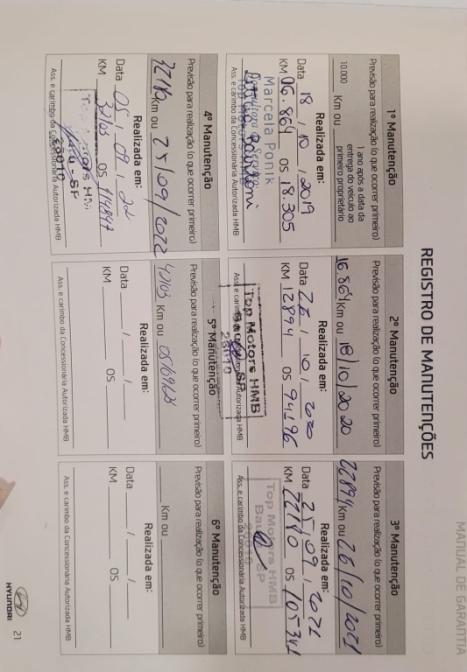 MANUAL DE GARANTIA
REGISTRO DE MANUTENÇÕES
1º Manutenção
Previsão para realização (o que ocorrer primeiro)
10.000 Km ou
1 ano após a data da
entrega do veículo ao
primeiro proprietário
Realizada em:
Data 18 / 10 / 2019
KM 06.864 OS 18.305
Marcela Ponik
Ass. e carimbo da Concessionária Autorizada HMB
2º Manutenção
Previsão para realização (o que ocorrer primeiro)
16.864 Km ou 18/10/2020
Realizada em:
Data 26 / 10 / 2020
KM 12894 OS 94196
Top Motors HMB
Bauru SP
Ass. e carimbo da Concessionária Autorizada HMB
3º Manutenção
Previsão para realização (o que ocorrer primeiro)
22894 Km ou 26/10/2021
Realizada em:
Data 25 / 09 / 2021
KM 22140 OS 105341
Top Motors HMB
Bauru SP
Ass. e carimbo da Concessionária Autorizada HMB
4º Manutenção
Previsão para realização (o que ocorrer primeiro)
Km ou 25/09/2022
Realizada em:
Data 05 / 09 / 22
KM OS
Ass. e carimbo da Concessionária Autorizada HMB
5º Manutenção
Previsão para realização (o que ocorrer primeiro)
Km ou 05/09/23
Realizada em:
Data / /
KM OS
Ass. e carimbo da Concessionária Autorizada HMB
6º Manutenção
Previsão para realização (o que ocorrer primeiro)
Km ou
Realizada em:
Data / /
KM OS
Ass. e carimbo da Concessionária Autorizada HMB
HYUNDAI
21